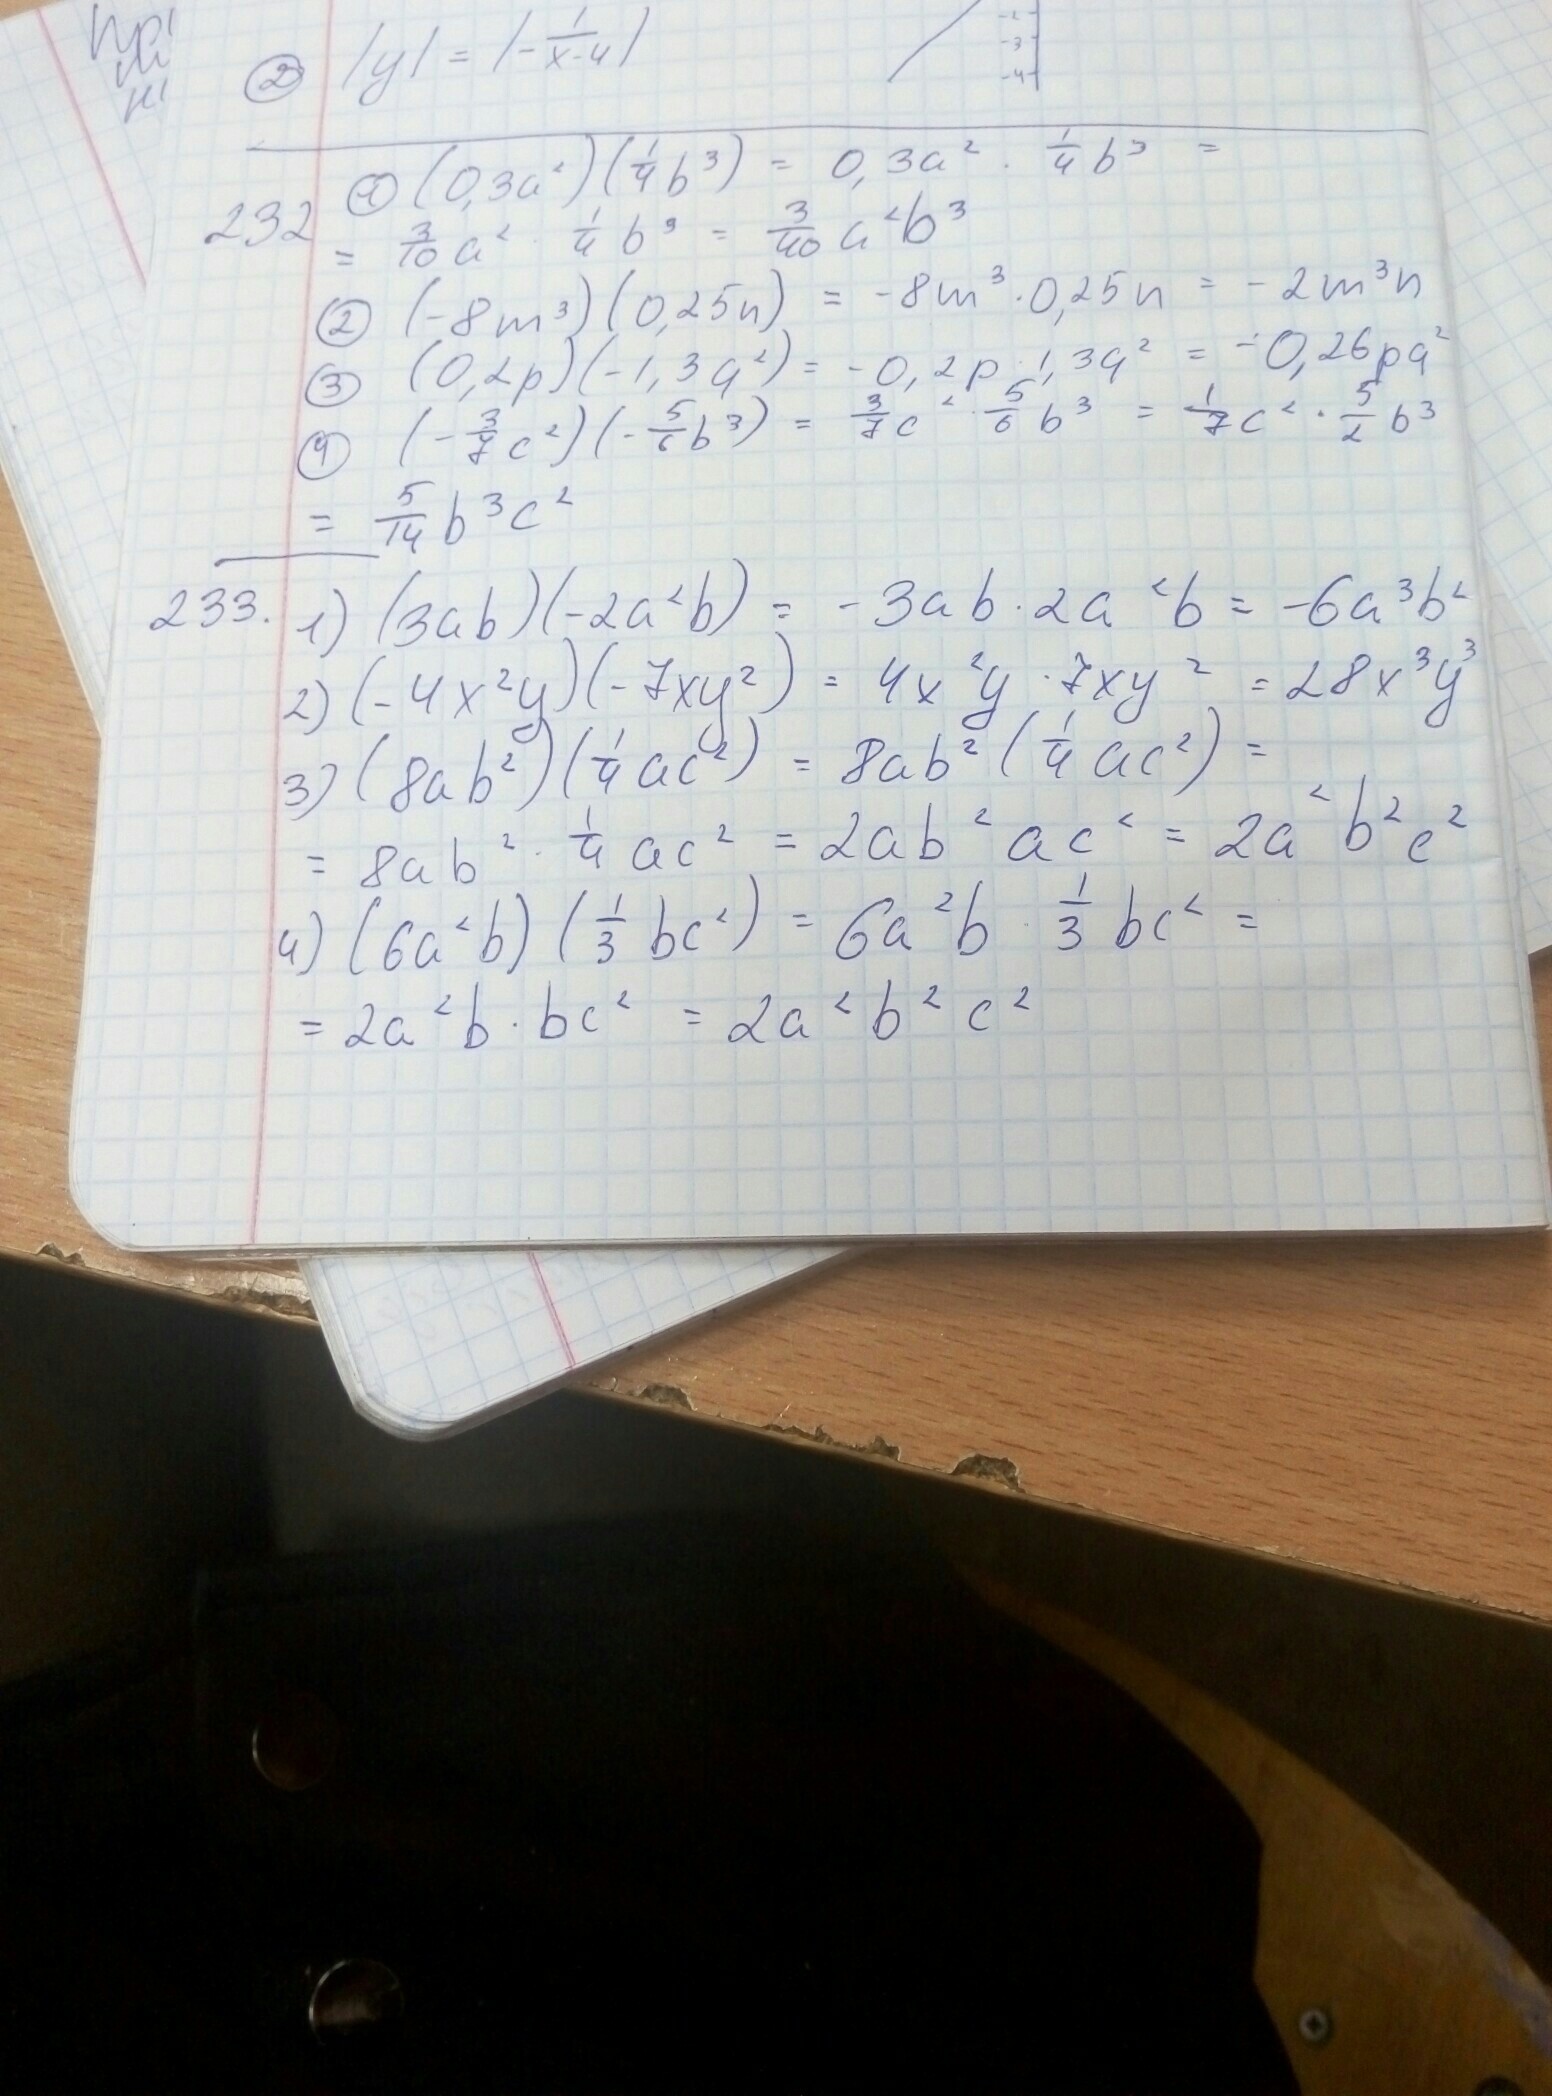 ② |y| = |-1/(x-4)|
-2
-3
-4
232 ① (0,3a²)(1/4 b³) = 0,3a² · 1/4 b³ =
= 3/10 a² · 1/4 b³ = 3/40 a²b³
② (-8m³)(0,25n) = -8m³ · 0,25n = -2m³n
③ (0,2p)(-1,3q²) = -0,2p · 1,3q² = -0,26pq²
④ (-3/7 c²)(-5/6 b³) = 3/7 c² · 5/6 b³ = 1/7 c² · 5/2 b³
= 5/14 b³c²
233. 1) (3ab)(-2a²b) = -3ab · 2a²b = -6a³b²
2) (-4x²y)(-7xy²) = 4x²y · 7xy² = 28x³y³
3) (8ab²)(1/4 ac²) = 8ab² (1/4 ac²) =
= 8ab² · 1/4 ac² = 2ab² ac² = 2a²b²c²
4) (6a²b)(1/3 bc²) = 6a²b · 1/3 bc² =
= 2a²b · bc² = 2a²b²c²